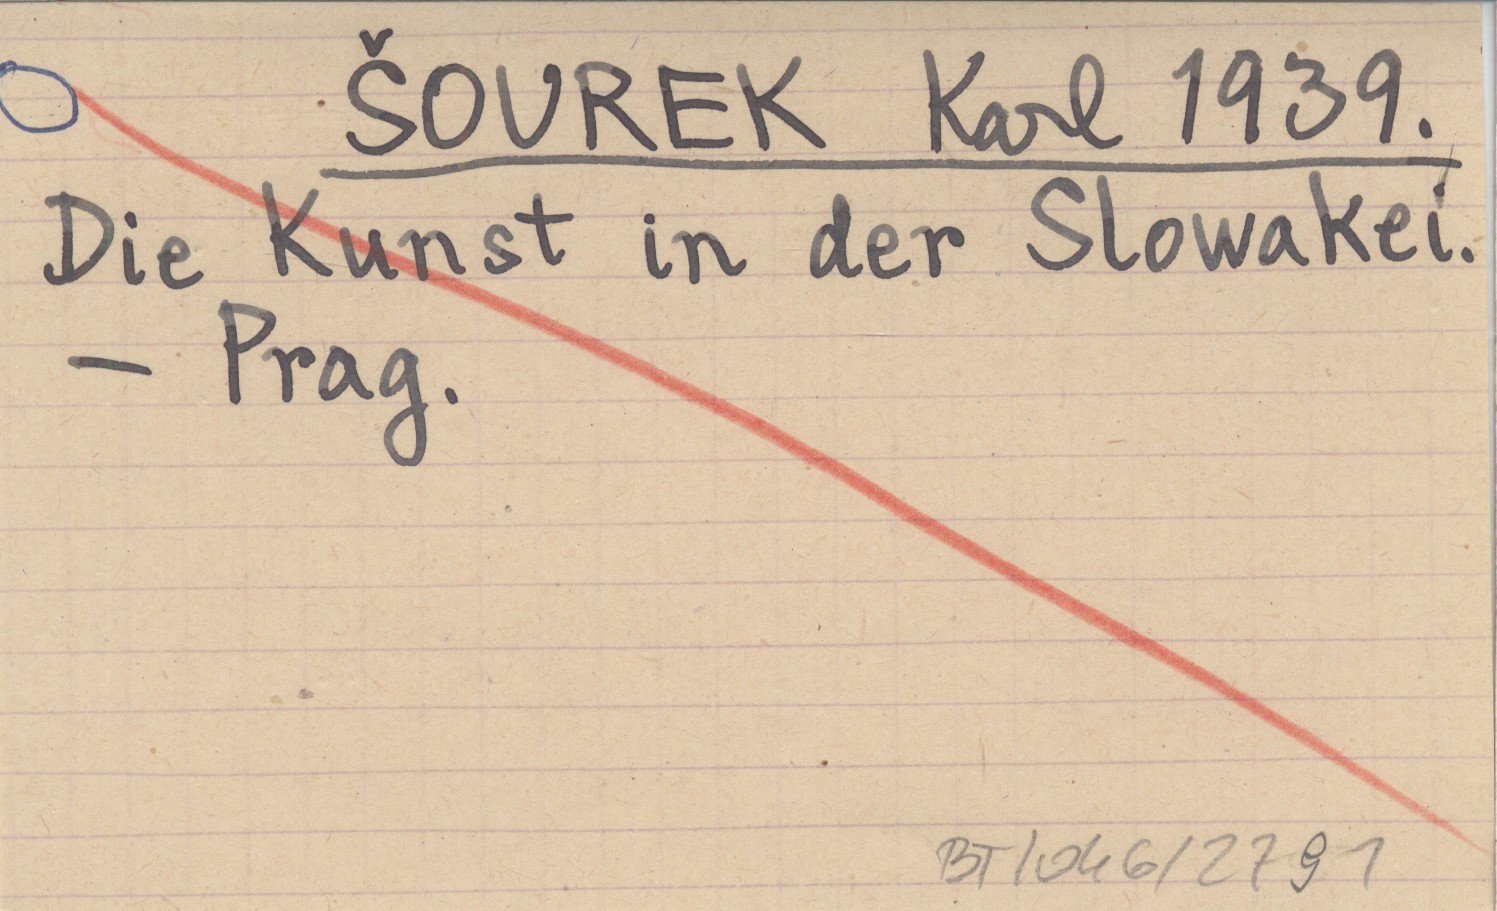 ŠOUREK Karl 1939.
Die Kunst in der Slowakei.
– Prag.
BT/046/2791